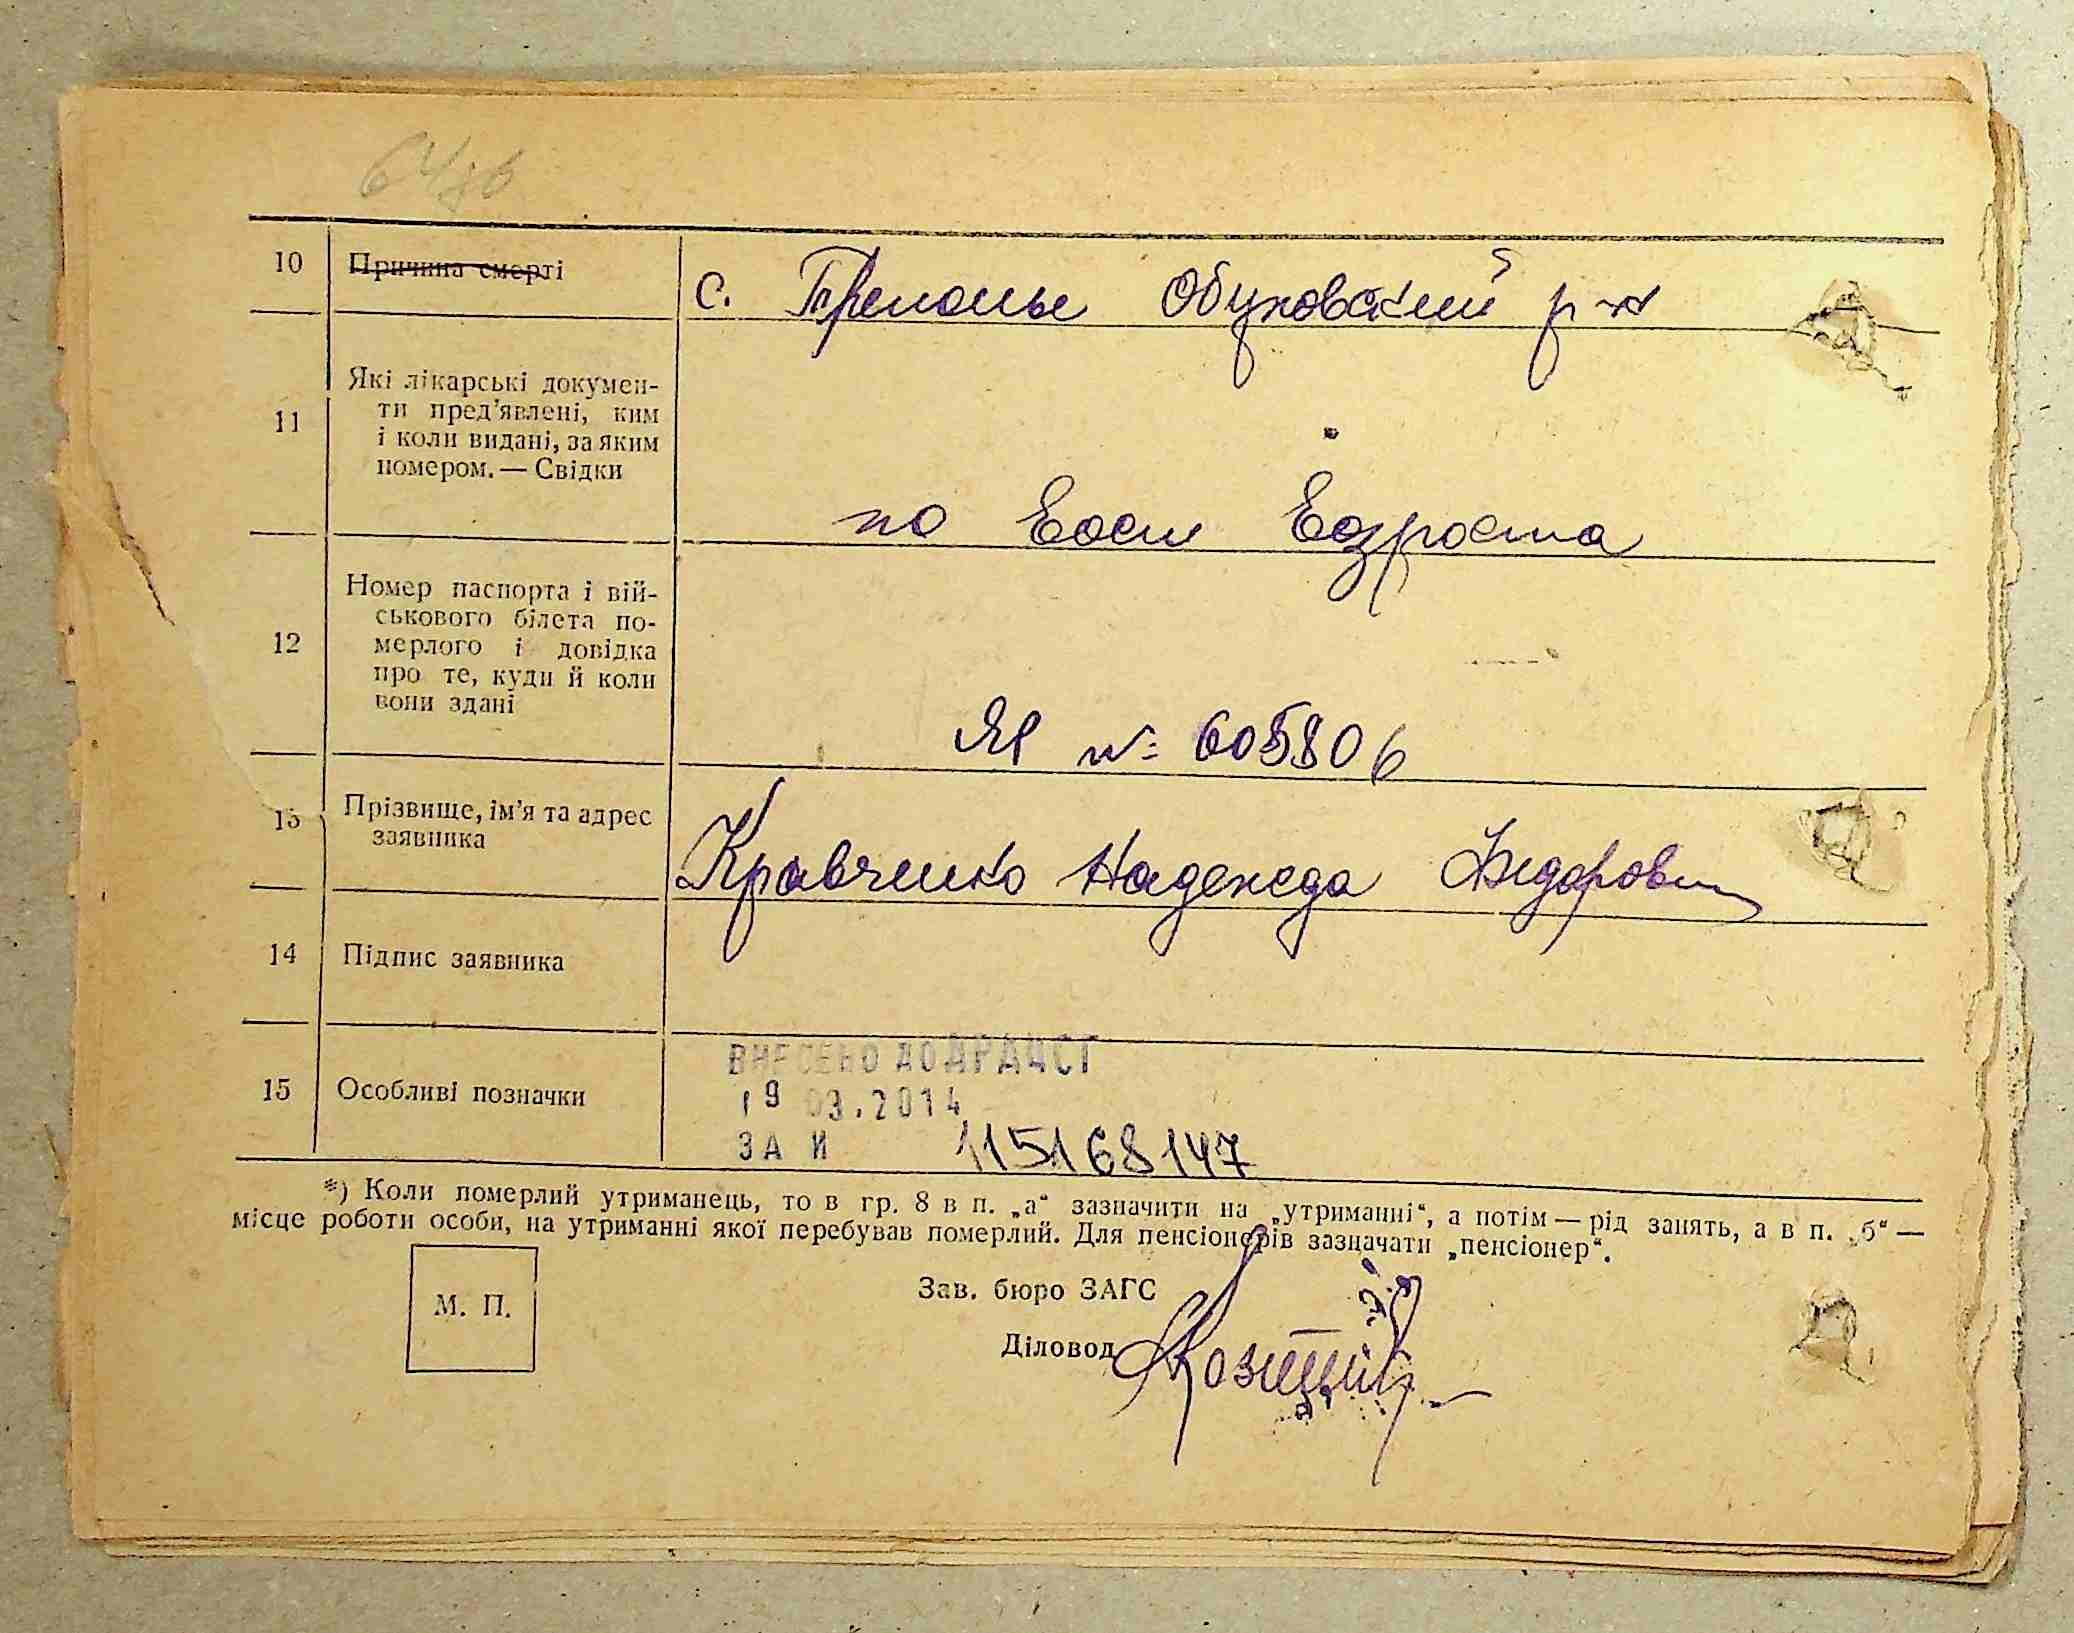 64 зв
10 Причина смерті с. Триполье Обуховский р-н
11 Які лікарські докумен-
ти пред'явлені, ким
і коли видані, за яким
номером. — Свідки
по возраста
12 Номер паспорта і вій-
ськового білета по-
мерлого і довідка
про те, куди й коли
вони здані
ЯР № 605806
13 Прізвище, ім'я та адрес
заявника
Кравченко Надежда
14 Підпис заявника
15 Особливі позначки
ВНЕСЕНО ДО ДРАЦСГ
19 03.2014
ЗА И 115168147
*) Коли померлий утриманець, то в гр. 8 в п. „а“ зазначити на „утриманні“, а потім — рід занять, а в п. „б“ —
місце роботи особи, на утриманні якої перебував померлий. Для пенсіонерів зазначати „пенсіонер“.
М. П.
Зав. бюро ЗАГС
Діловод